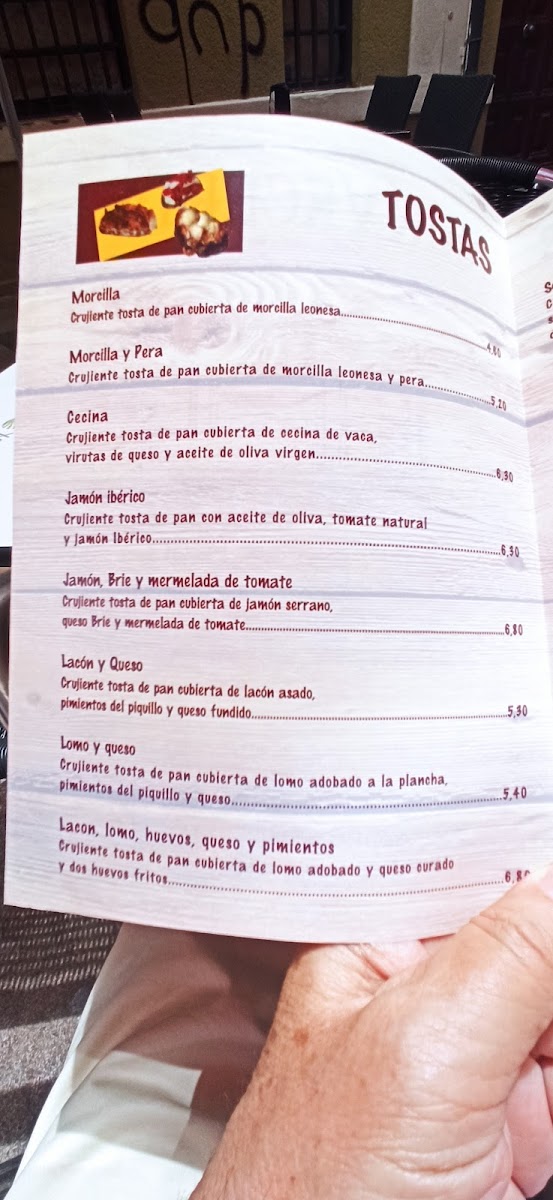 TOSTAS
Morcilla
Crujiente tosta de pan cubierta de morcilla leonesa
4,60
Morcilla y Pera
Crujiente tosta de pan cubierta de morcilla leonesa y pera
5,20
Cecina
Crujiente tosta de pan cubierta de cecina de vaca,
virutas de queso y aceite de oliva virgen
6,30
Jamón ibérico
Crujiente tosta de pan con aceite de oliva, tomate natural
y jamón Ibérico
6,30
Jamón, Brie y mermelada de tomate
Crujiente tosta de pan cubierta de jamón serrano,
queso Brie y mermelada de tomate
6,80
Lacón y Queso
Crujiente tosta de pan cubierta de lacón asado,
pimientos del piquillo y queso fundido
5,30
Lomo y queso
Crujiente tosta de pan cubierta de lomo adobado a la plancha,
pimientos del piquillo y queso
5,40
Lacon, lomo, huevos, queso y pimientos
Crujiente tosta de pan cubierta de lomo adobado y queso curado
y dos huevos fritos